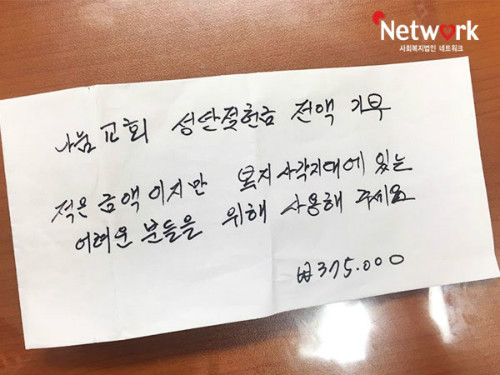 Network
사회복지법인 네트워크
나눔교회 성탄절헌금 전액 기부
적은 금액이지만 복지사각지대에 있는
어려운 분들을 위해 사용해 주세요
₩375.000